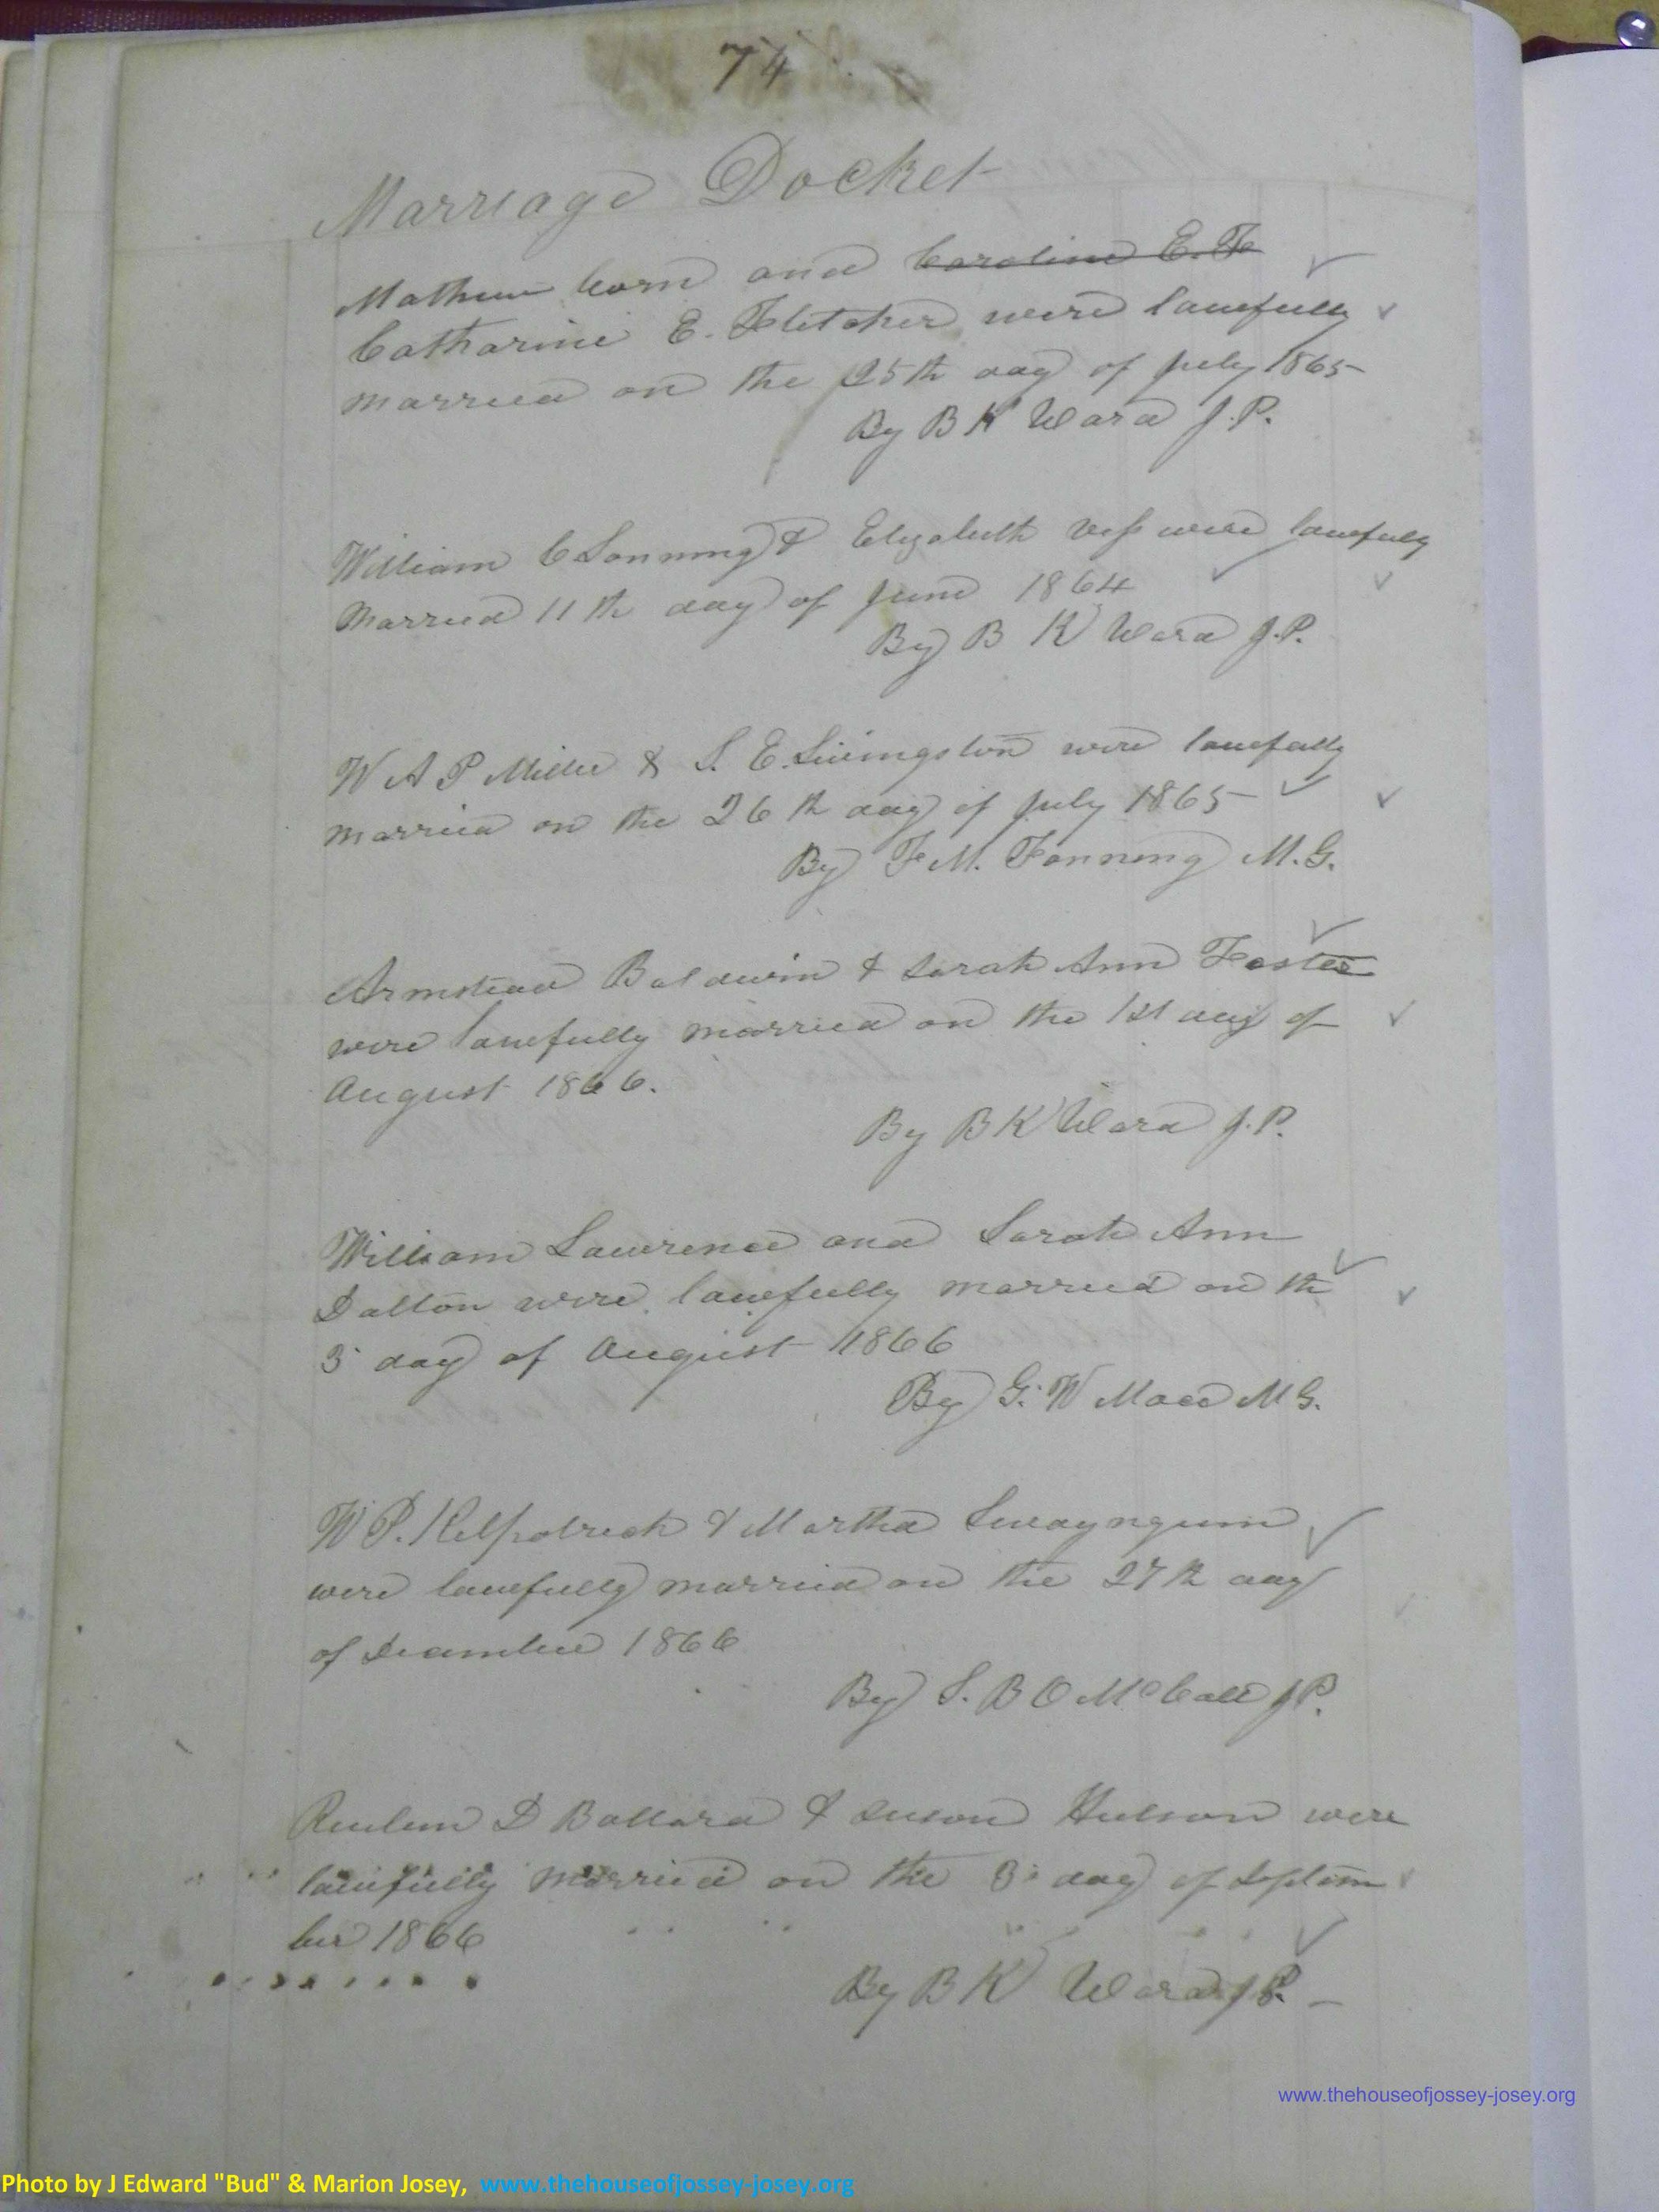 74
Marriage Docket
Mathew Corn and Caroline E. F
Catharine E. Fletcher were lawfully
married on the 25th day of July 1865
By B K Ward J.P.
William C Lanning & Elizabeth Vess were lawfuly
Married 11th day of June 1864
By B K Ward J.P.
W A P Miller & S. E. Livingston were lawfully
married on the 26th day of July 1865
By F M. Fanning M.G.
Armstead Baldwin & Sarah Ann Foster
were lawfully married on the 1st day of
August 1866.
By B K Ward J.P.
William Lawrence and Sarah Ann
Dalton were lawfully married on the
3 day of August 1866
By G. W Mace M G.
W P. Kilpatrick & Martha Swayngum
were lawfully married on the 27th day
of December 1866
By S. B O McCall J P.
Reuben D Ballard & Suson Hutson were
lawfully married on the 3 day of Septem
ber 1866
By B K Ward J P.
www.thehouseofjossey-josey.org
Photo by J Edward "Bud" & Marion Josey, www.thehouseofjossey-josey.org